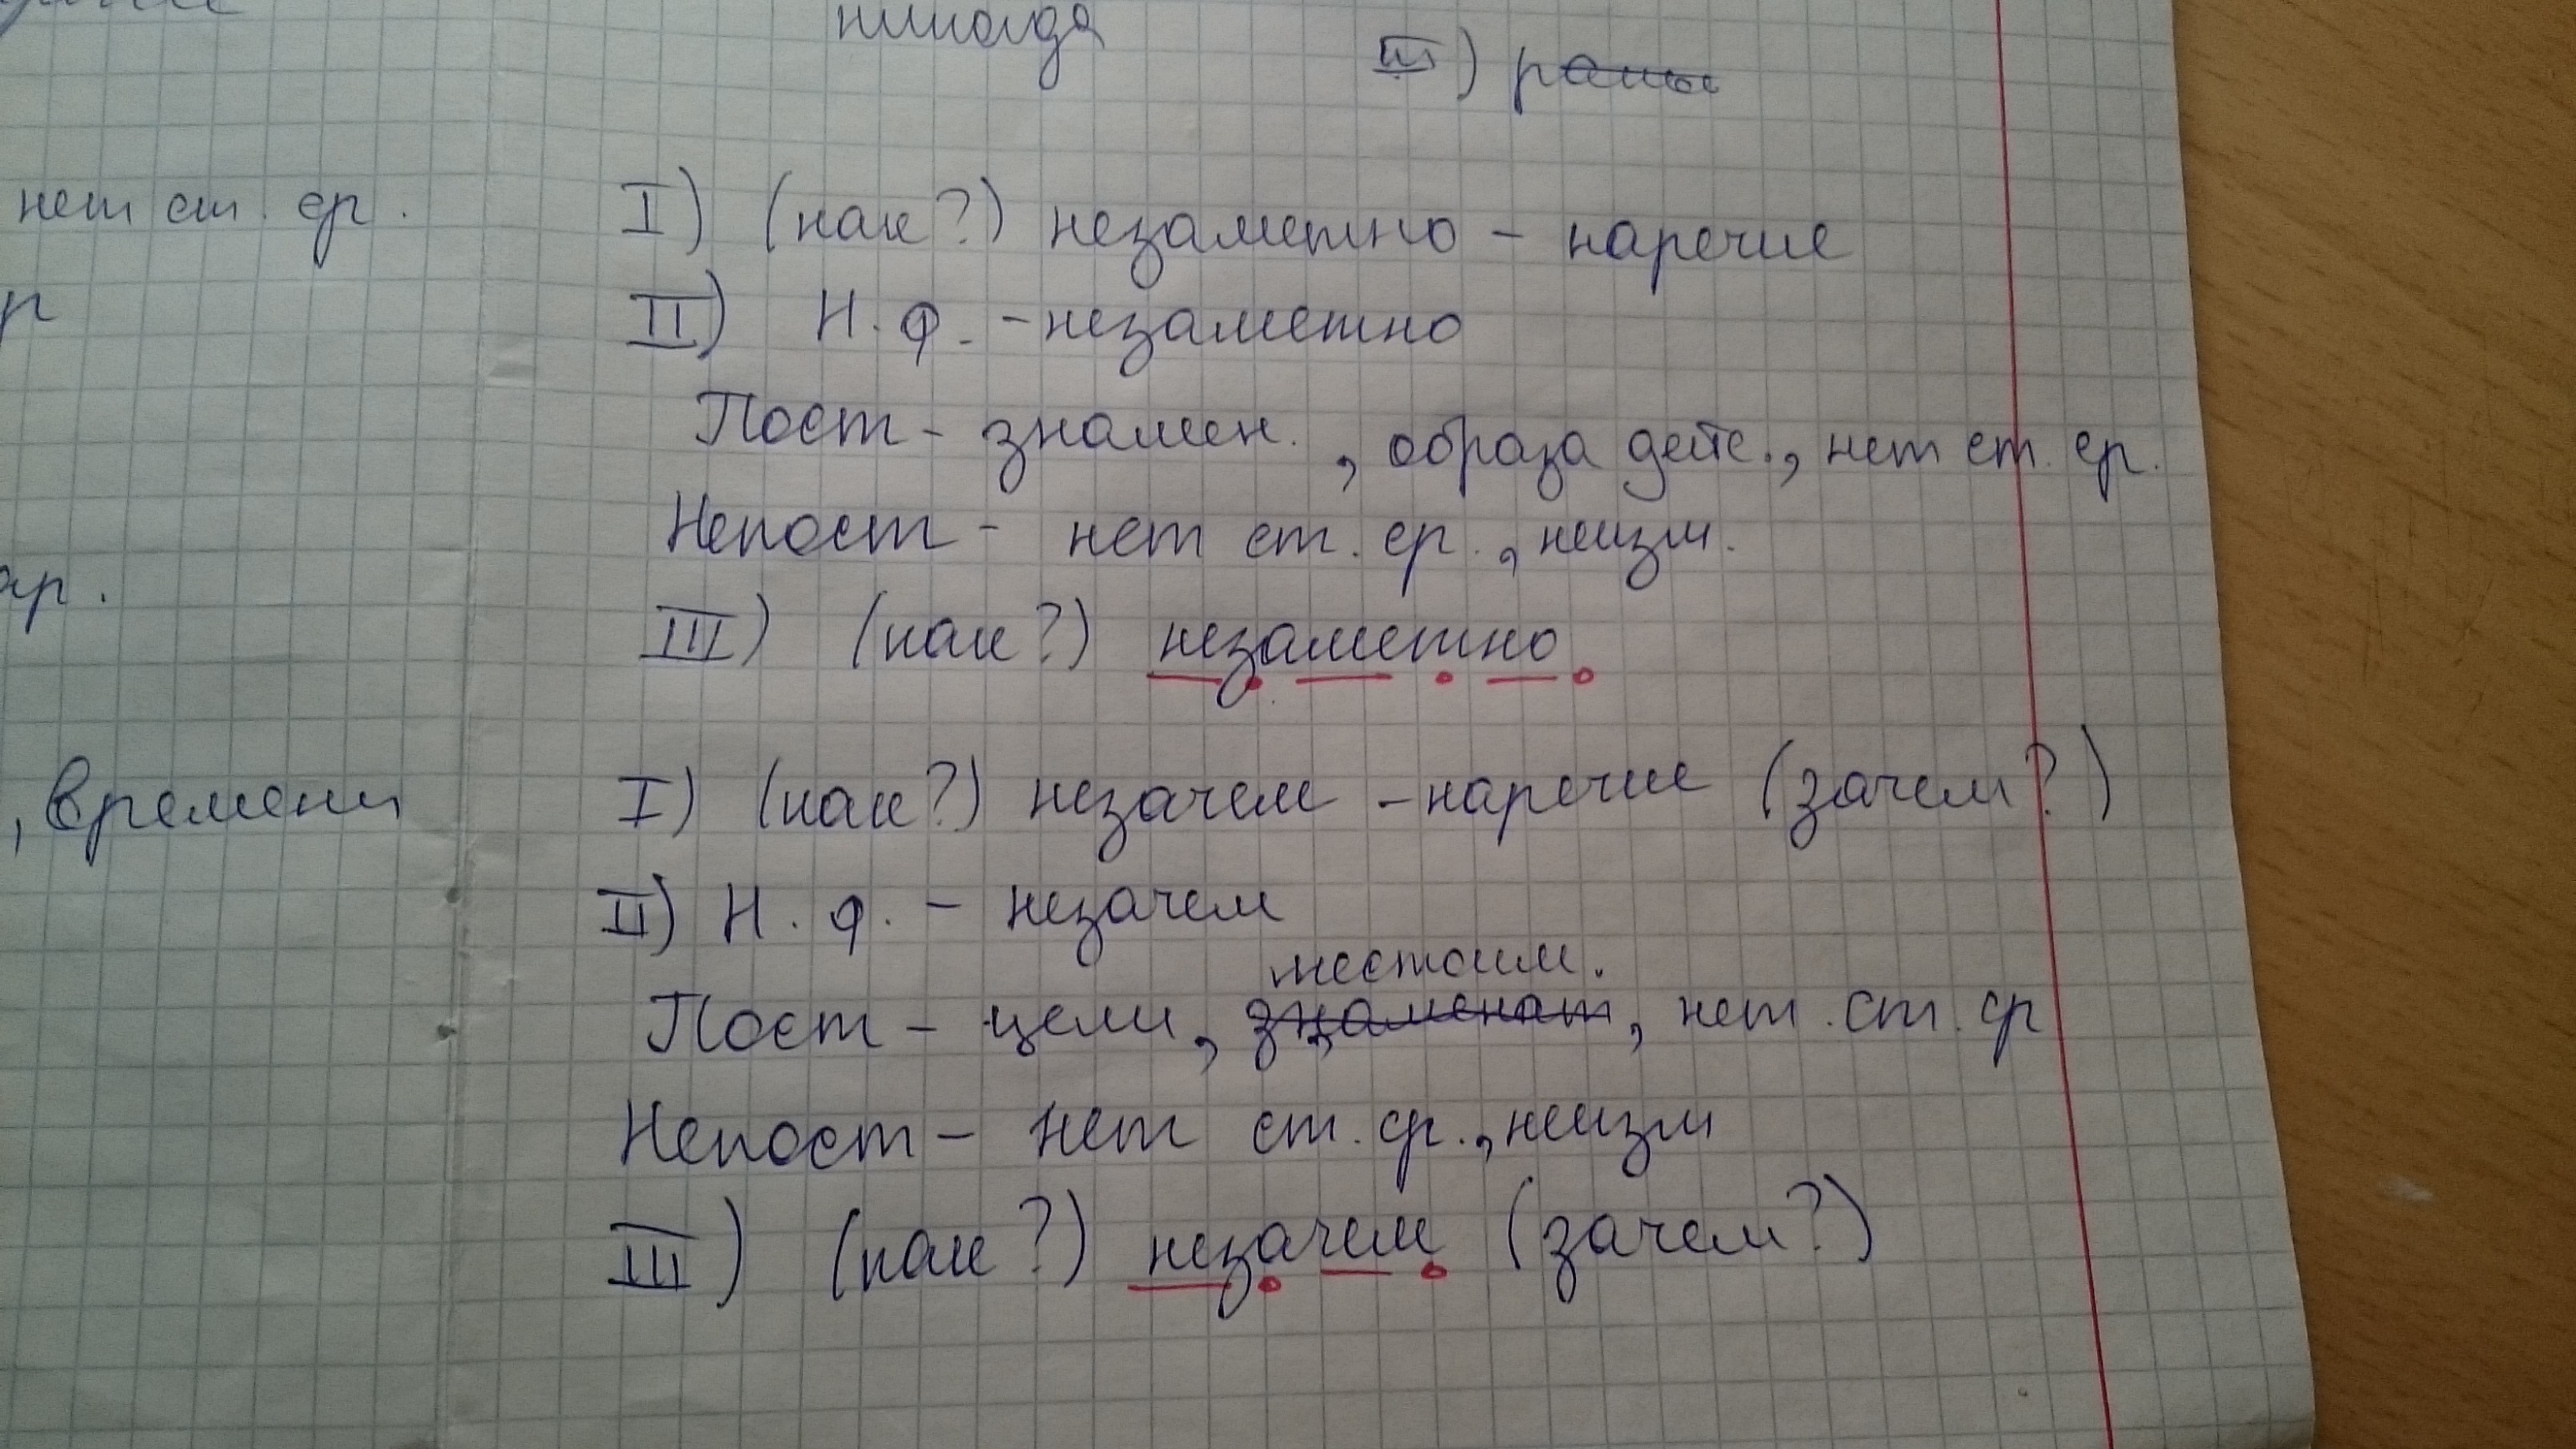 никогда
III)
нет ст. ср.
I) (как?) незаметно – наречие
II) Н. ф. – незаметно
Пост – знамен., образа дейс., нет ст. ср.
Непост – нет ст. ср., неизм.
III) (как?) незаметно
, времени
I) (как?) незачем – наречие (зачем?)
II) Н. ф. – незачем
местоим.
Пост – цели, знаменат, нет. ст. ср
Непост – нет ст. ср., неизм
III) (как?) незачем (зачем?)